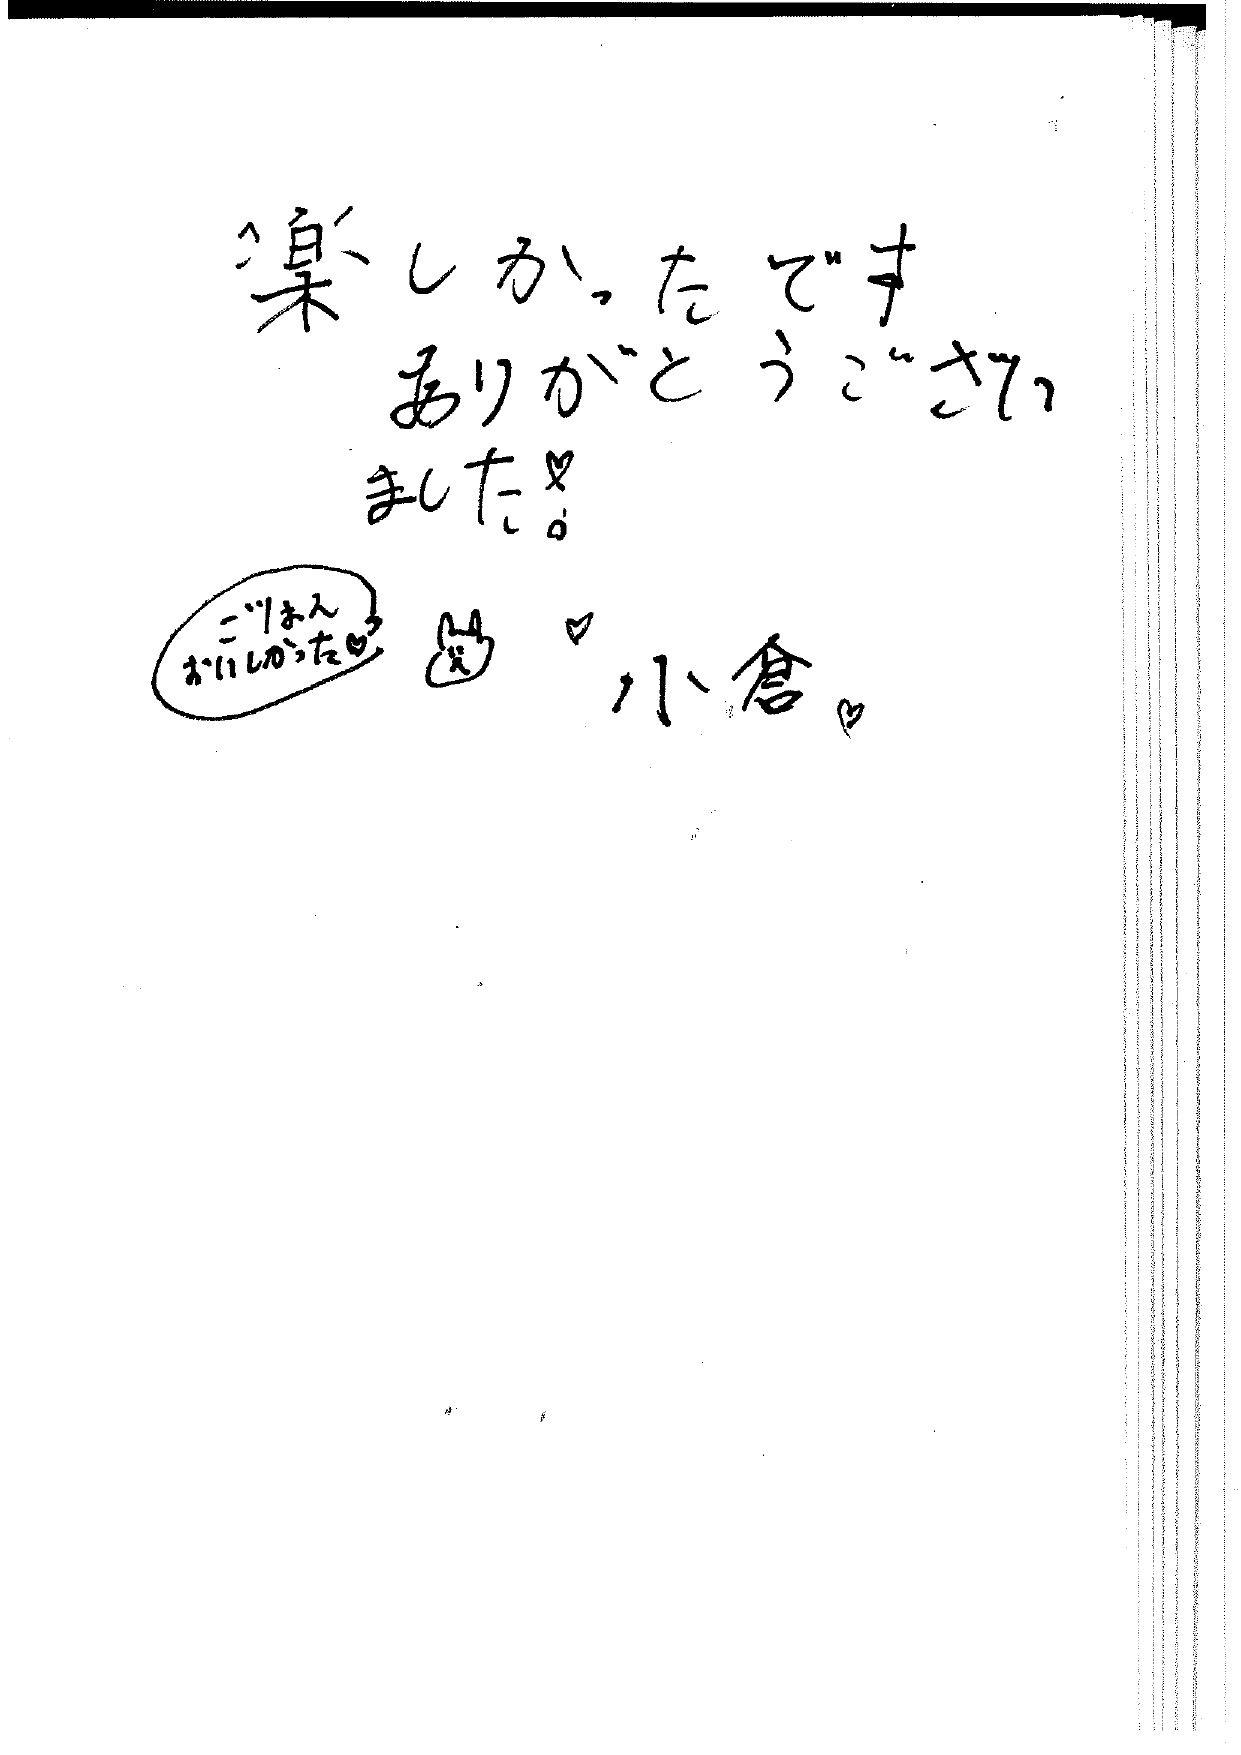 楽しかったです
ありがとうござい
ました♡!
ごはん
おいしかった♡
♡小倉♡